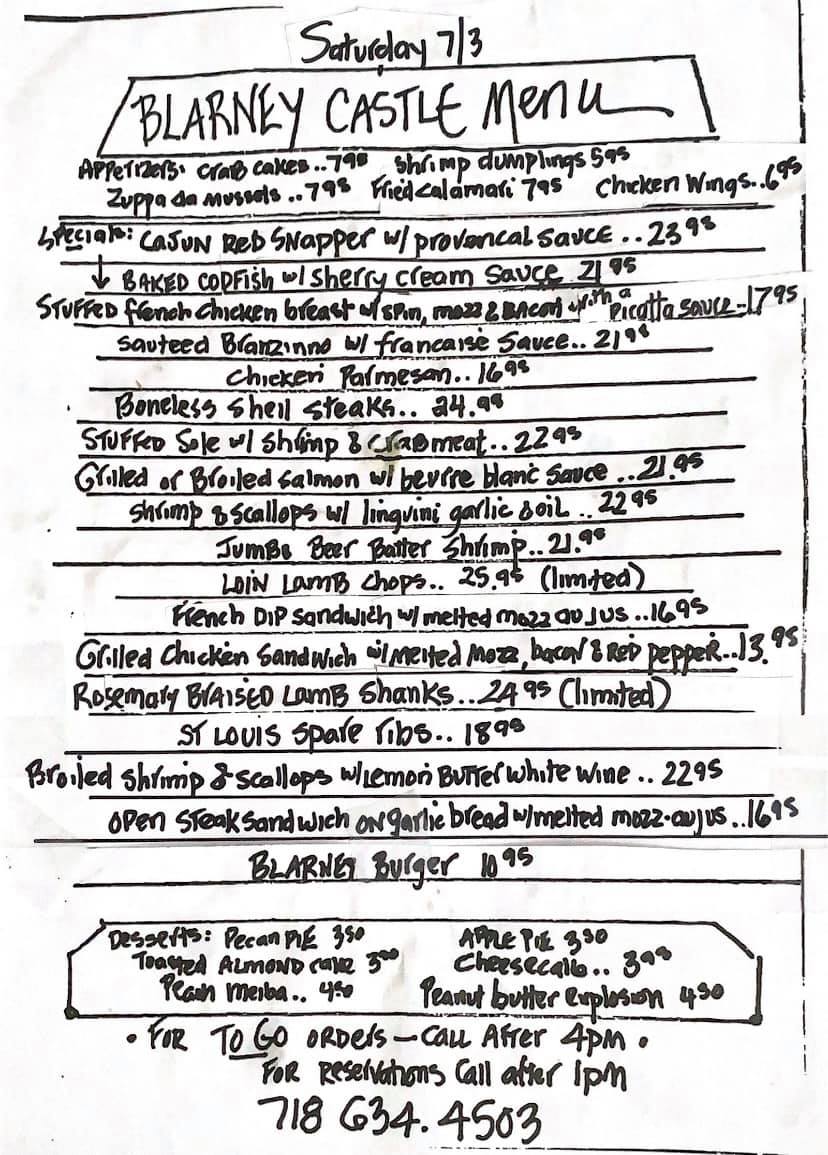 Saturday 7/3
BLARNEY CASTLE Menu
Appetizers: Crab cakes..795 Shrimp dumplings 595
Zuppa da Mussels..795 Fried Calamari 795 Chicken Wings..695
Specials: CAJUN Red SNAPPER w/ provencal SAUCE..2395
↓ BAKED CODFISH w/ Sherry cream SAUCE 2195
STUFFED french Chicken breast w/ SPIN, mozz & BACON with a Picatta sauce-1795
Sauteed Branzinno w/ francaise Sauce..2195
Chicken Parmesan..1695
Boneless Shell Steaks..24.95
STUFFED Sole w/ Shrimp & CRABmeat..2295
Grilled or Broiled Salmon w/ beurre blanc Sauce..21.95
Shrimp & Scallops w/ linguini garlic & oil..2295
Jumbo Beer Batter Shrimp..21.95
LOIN LAMB Chops..25.95 (limited)
French DIP Sandwich w/ melted mozz au jus..1695
Grilled Chicken Sandwich w/ melted Mozz, bacon & Red pepper..13.95
Rosemary BRAISED LAMB Shanks..2495 (limited)
ST LOUIS Spare ribs..1895
Broiled Shrimp & Scallops w/ Lemon BUTTER white wine..2295
OPEN STEAK Sandwich ON garlic bread w/ melted mozz-au jus..1695
BLARNEY Burger 1095
Desserts: Pecan PIE 350 APPLE PIE 350
Toasted ALMOND cake 300 Cheesecake..
Peach melba..450 Peanut butter explosion 450
• FOR TO GO ORDERS — CALL AFTER 4PM •
FOR Reservations Call after 1pm
718 634.4503